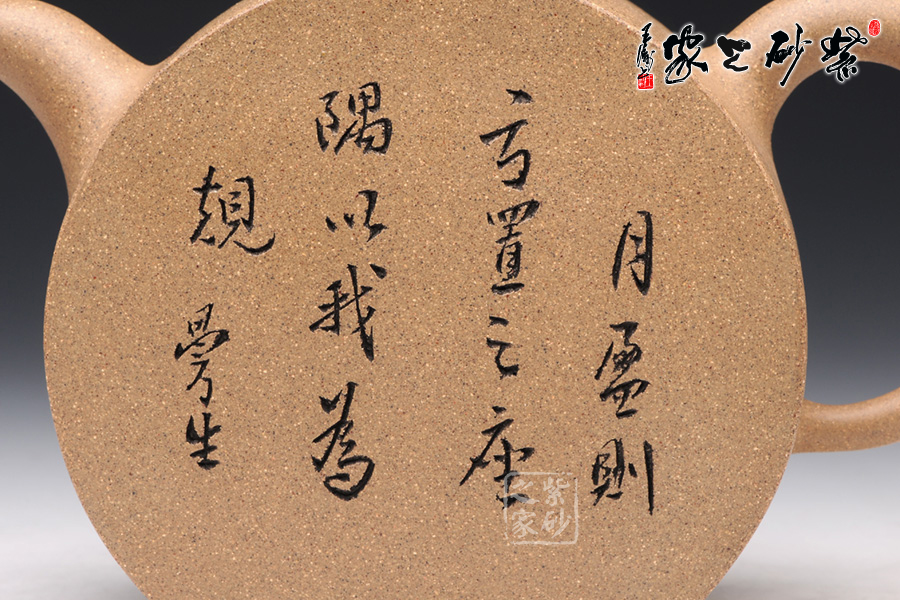 月盈則
亏置之座
隅以我為
規
曼生
紫砂之家
紫砂之家